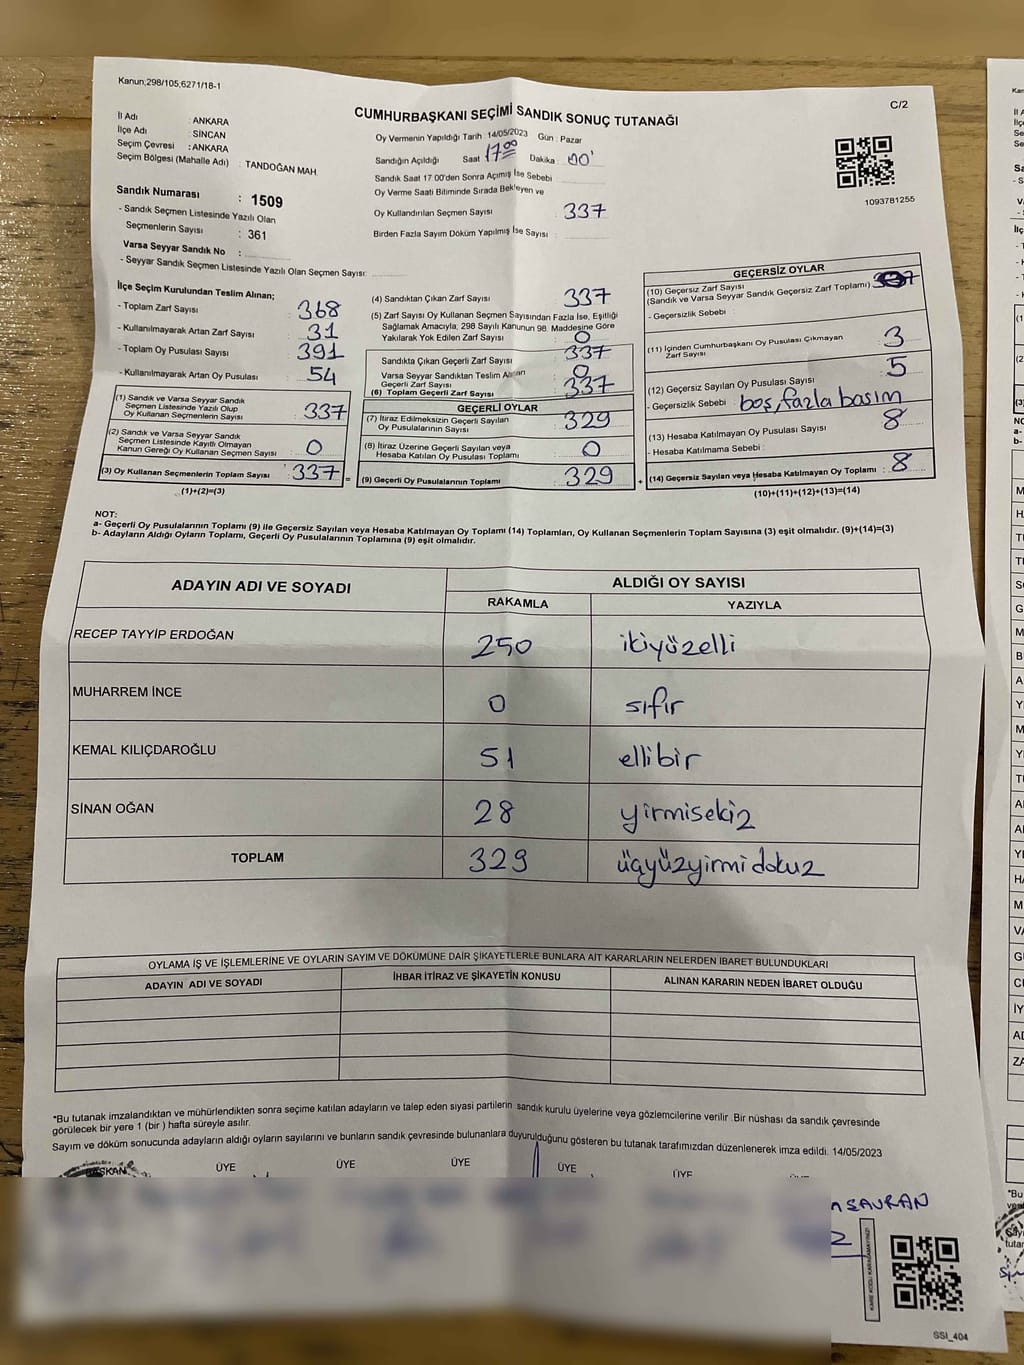 Kanun;298/105;6271/18-1
C/2
CUMHURBAŞKANI SEÇİMİ SANDIK SONUÇ TUTANAĞI
İl Adı : ANKARA
İlçe Adı : SİNCAN
Seçim Çevresi : ANKARA
Seçim Bölgesi (Mahalle Adı) : TANDOĞAN MAH.
Sandık Numarası : 1509
- Sandık Seçmen Listesinde Yazılı Olan
Seçmenlerin Sayısı : 361
Varsa Seyyar Sandık No :
- Seyyar Sandık Seçmen Listesinde Yazılı Olan Seçmen Sayısı:
Oy Vermenin Yapıldığı Tarih : 14/05/2023 Gün : Pazar
Sandığın Açıldığı Saat : 17:00 Dakika : 00'
Sandık Saat 17.00'den Sonra Açımış İse Sebebi :
Oy Verme Saati Bitiminde Sırada Bekleyen ve
Oy Kullandırılan Seçmen Sayısı : 337
Birden Fazla Sayım Döküm Yapılmış İse Sayısı :
1093781255
İlçe Seçim Kurulundan Teslim Alınan;
- Toplam Zarf Sayısı : 368
- Kullanılmayarak Artan Zarf Sayısı : 31
- Toplam Oy Pusulası Sayısı : 391
- Kullanılmayarak Artan Oy Pusulası : 54
(1) Sandık ve Varsa Seyyar Sandık
Seçmen Listesinde Yazılı Olup
Oy Kullanan Seçmenlerin Sayısı : 337
(2) Sandık ve Varsa Seyyar Sandık
Seçmen Listesinde Kayıtlı Olmayan
Kanun Gereği Oy Kullanan Seçmen Sayısı : 0
(3) Oy Kullanan Seçmenlerin Toplam Sayısı : 337
(1)+(2)=(3)
(4) Sandıktan Çıkan Zarf Sayısı : 337
(5) Zarf Sayısı Oy Kullanan Seçmen Sayısından Fazla İse, Eşitliği
Sağlamak Amacıyla; 298 Sayılı Kanunun 98. Maddesine Göre
Yakılarak Yok Edilen Zarf Sayısı : 0
Sandıkta Çıkan Geçerli Zarf Sayısı : 337
Varsa Seyyar Sandıktan Teslim Alınan
Geçerli Zarf Sayısı : 0
(6) Toplam Geçerli Zarf Sayısı : 337
GEÇERLİ OYLAR
(7) İtiraz Edilmeksizin Geçerli Sayılan
Oy Pusulalarının Sayısı : 329
(8) İtiraz Üzerine Geçerli Sayılan veya
Hesaba Katılan Oy Pusulası Toplamı : 0
= (9) Geçerli Oy Pusulalarının Toplamı : 329
GEÇERSİZ OYLAR
(10) Geçersiz Zarf Sayısı
(Sandık ve Varsa Seyyar Sandık Geçersiz Zarf Toplamı) :
- Geçersizlik Sebebi :
(11) İçinden Cumhurbaşkanı Oy Pusulası Çıkmayan
Zarf Sayısı : 3
(12) Geçersiz Sayılan Oy Pusulası Sayısı : 5
- Geçersizlik Sebebi : boş, fazla basım
(13) Hesaba Katılmayan Oy Pusulası Sayısı : 8
- Hesaba Katılmama Sebebi :
+ (14) Geçersiz Sayılan veya Hesaba Katılmayan Oy Toplamı : 8
(10)+(11)+(12)+(13)=(14)
NOT:
a- Geçerli Oy Pusulalarının Toplamı (9) ile Geçersiz Sayılan veya Hesaba Katılmayan Oy Toplamı (14) Toplamları, Oy Kullanan Seçmenlerin Toplam Sayısına (3) eşit olmalıdır. (9)+(14)=(3)
b- Adayların Aldığı Oyların Toplamı, Geçerli Oy Pusulalarının Toplamına (9) eşit olmalıdır.
ADAYIN ADI VE SOYADI ALDIĞI OY SAYISI
RAKAMLA YAZIYLA
RECEP TAYYİP ERDOĞAN 250 ikiyüzelli
MUHARREM İNCE 0 sıfır
KEMAL KILIÇDAROĞLU 51 ellibir
SİNAN OĞAN 28 yirmisekiz
TOPLAM 329 üçyüzyirmidokuz
OYLAMA İŞ VE İŞLEMLERİNE VE OYLARIN SAYIM VE DÖKÜMÜNE DAİR ŞİKAYETLERLE BUNLARA AİT KARARLARIN NELERDEN İBARET BULUNDUKLARI
ADAYIN ADI VE SOYADI İHBAR İTİRAZ VE ŞİKAYETİN KONUSU ALINAN KARARIN NEDEN İBARET OLDUĞU
*Bu tutanak imzalandıktan ve mühürlendikten sonra seçime katılan adayların ve talep eden siyasi partilerin sandık kurulu üyelerine veya gözlemcilerine verilir. Bir nüshası da sandık çevresinde
görülecek bir yere 1 (bir) hafta süreyle asılır.
Sayım ve döküm sonucunda adayların aldığı oyların sayılarını ve bunların sandık çevresinde bulunanlara duyurulduğunu gösteren bu tutanak tarafımızdan düzenlenerek imza edildi. 14/05/2023
BAŞKAN ÜYE ÜYE ÜYE ÜYE ÜYE
SAVRAN
SSI_404